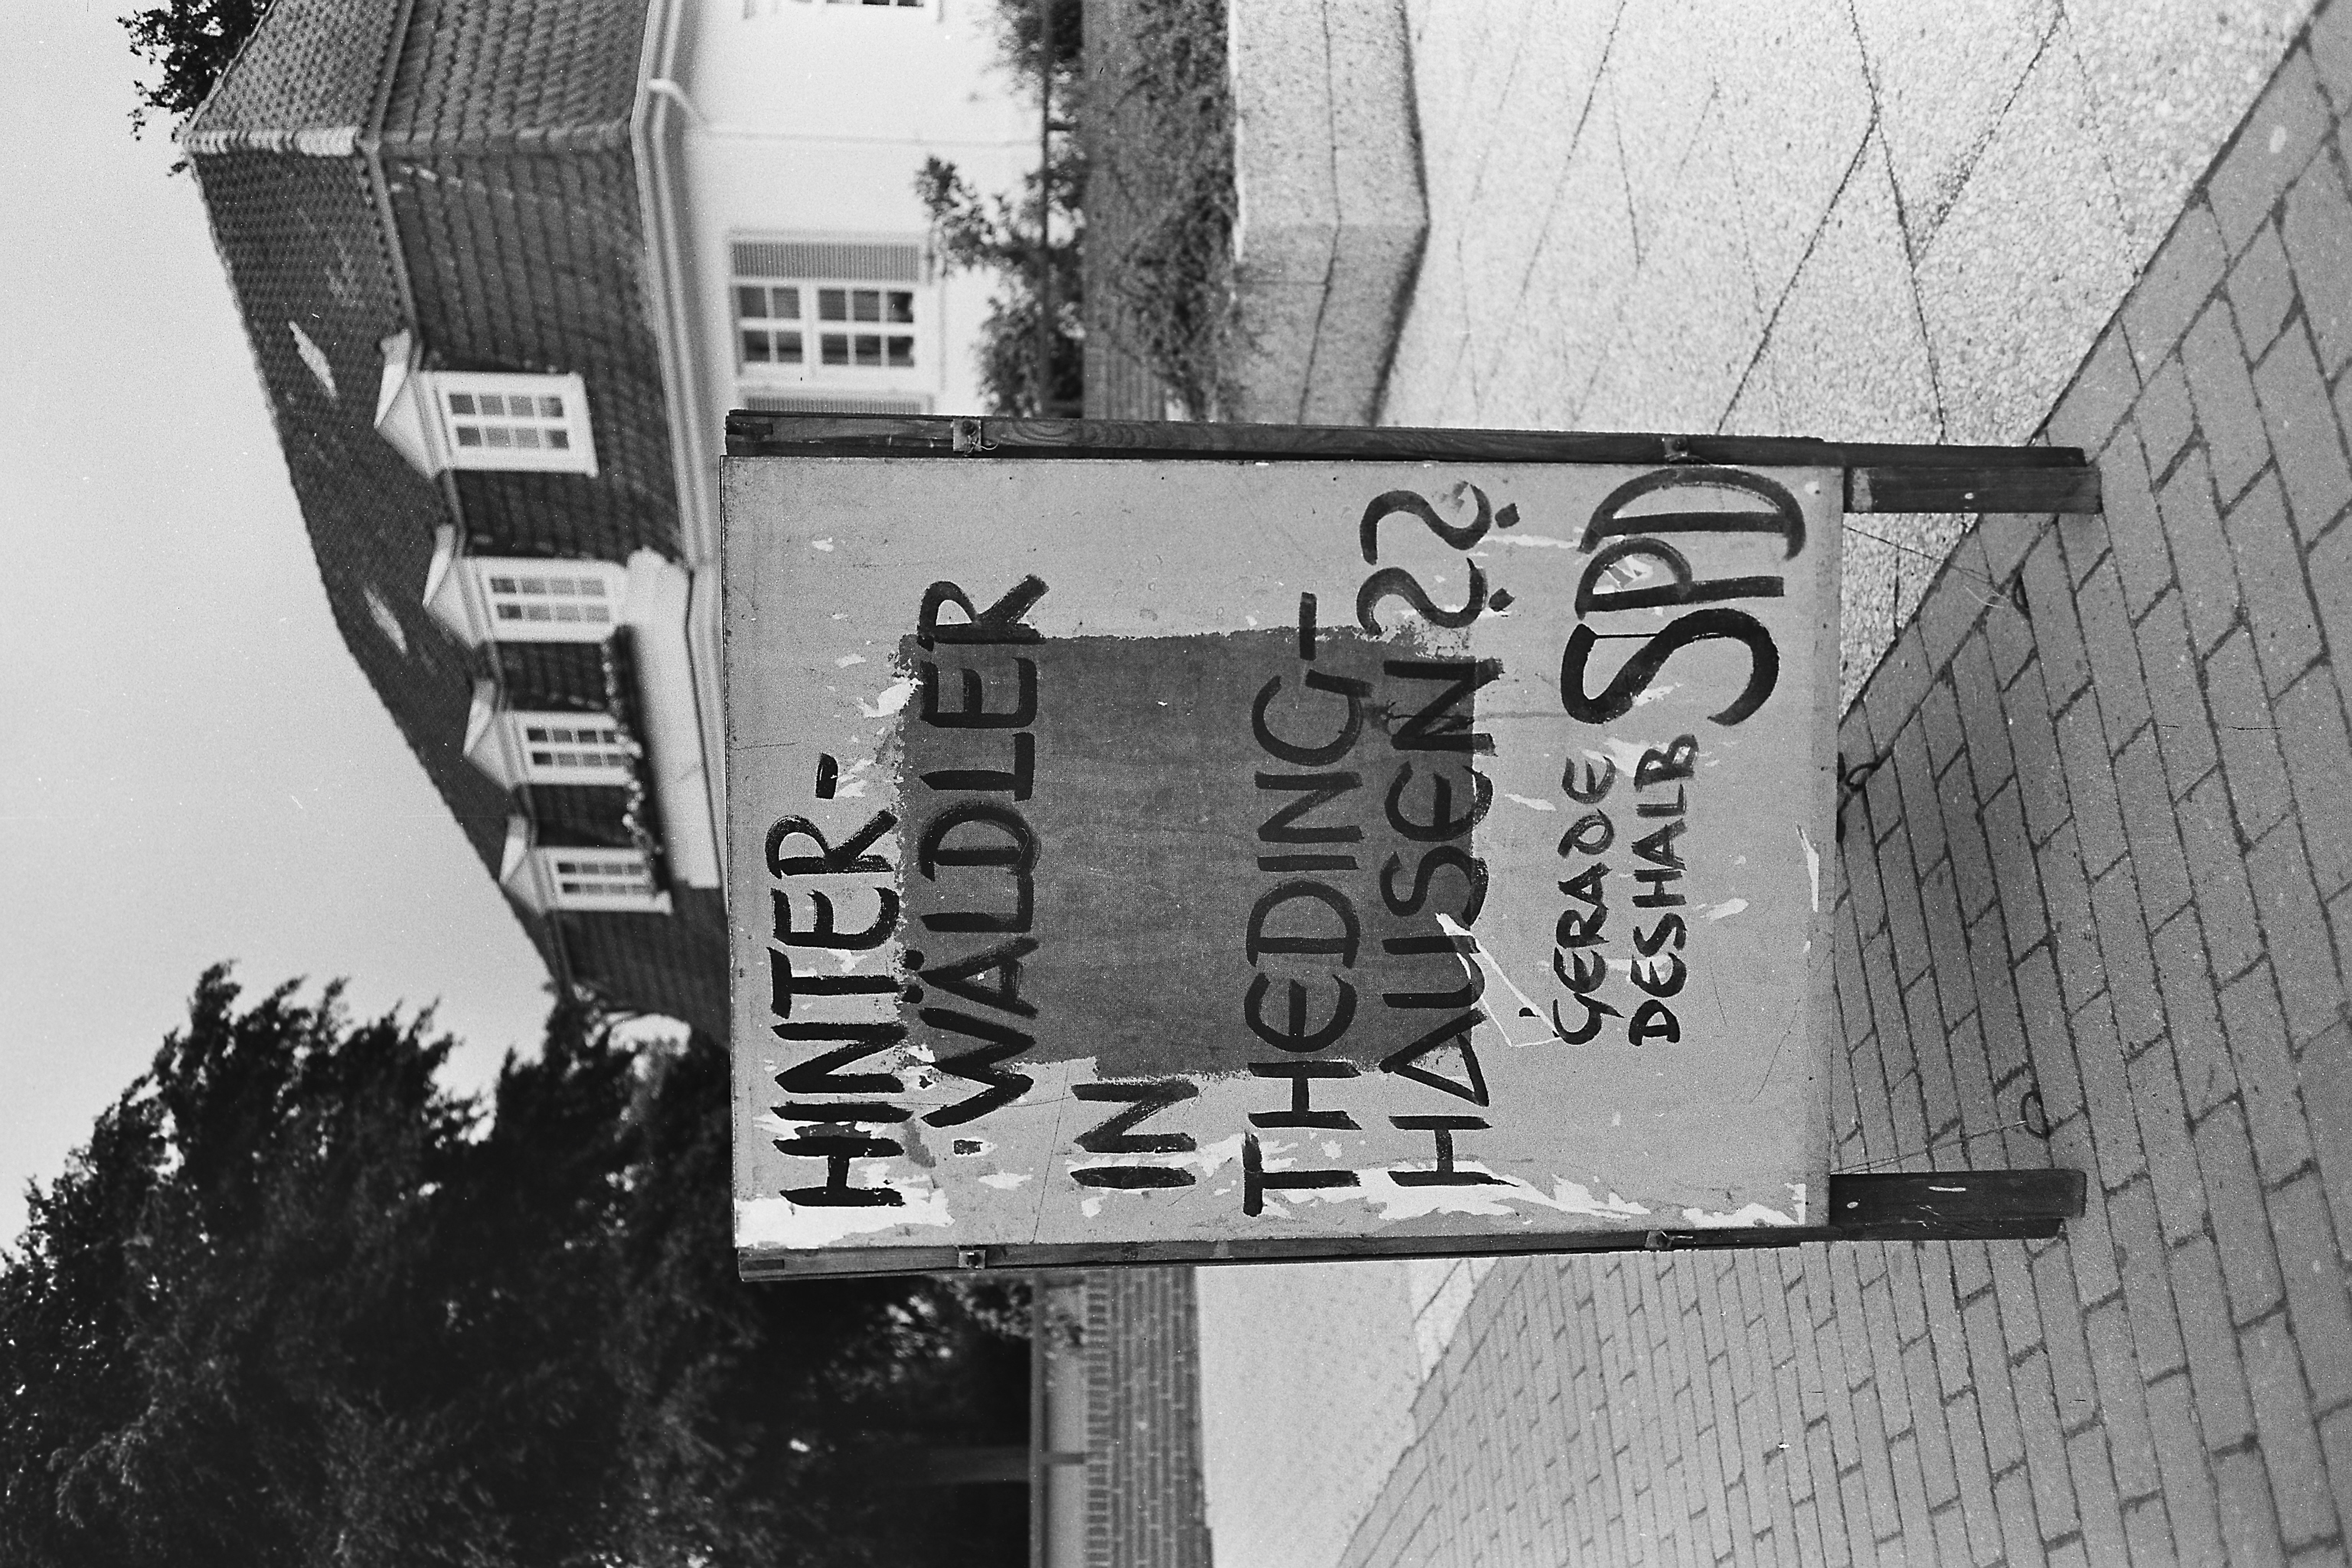 HINTER-
WÄLDLER
IN
THEDING-
HAUSEN??
GERADE
DESHALB SPD